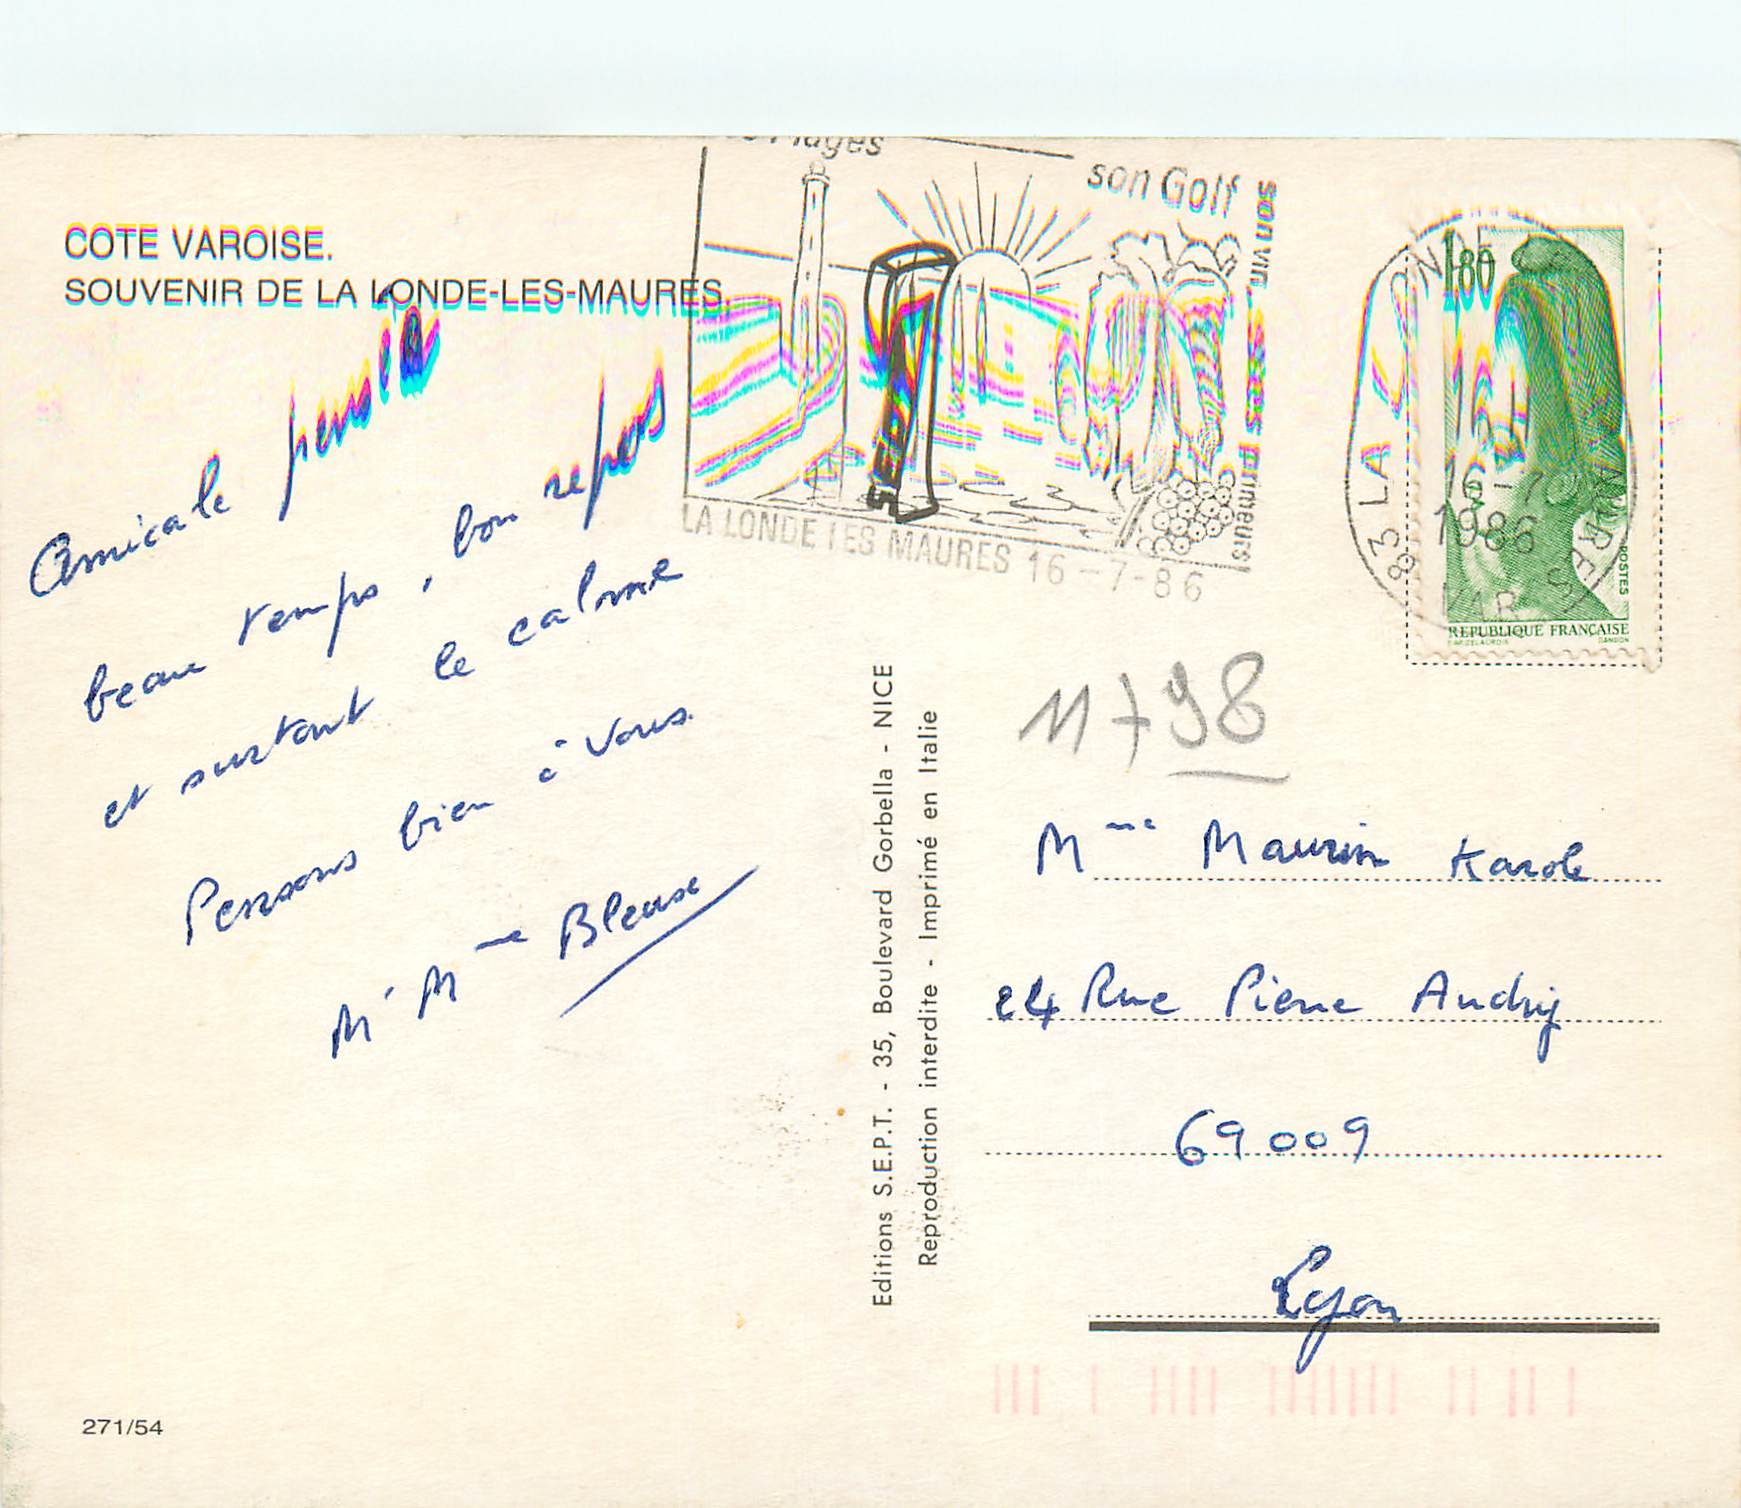 COTE VAROISE.
SOUVENIR DE LA LONDE-LES-MAURES.
Amicale
beau temps, bon repos
et surtout le calme
Pensons bien à vous.
Mr Mme Bleuse
271/54
Plages
son Golf
son vin ses primeurs
LA LONDE LES MAURES 16-7-86
83 LA LONDE LES MAURES
16-7
1986
VAR
1,80
POSTES
REPUBLIQUE FRANÇAISE
GANDON
Editions S.E.P.T. - 35, Boulevard Gorbella - NICE
Reproduction interdite - Imprimé en Italie
Mme Maurin Karole
24 Rue Pierre Audry
69009
Lyon